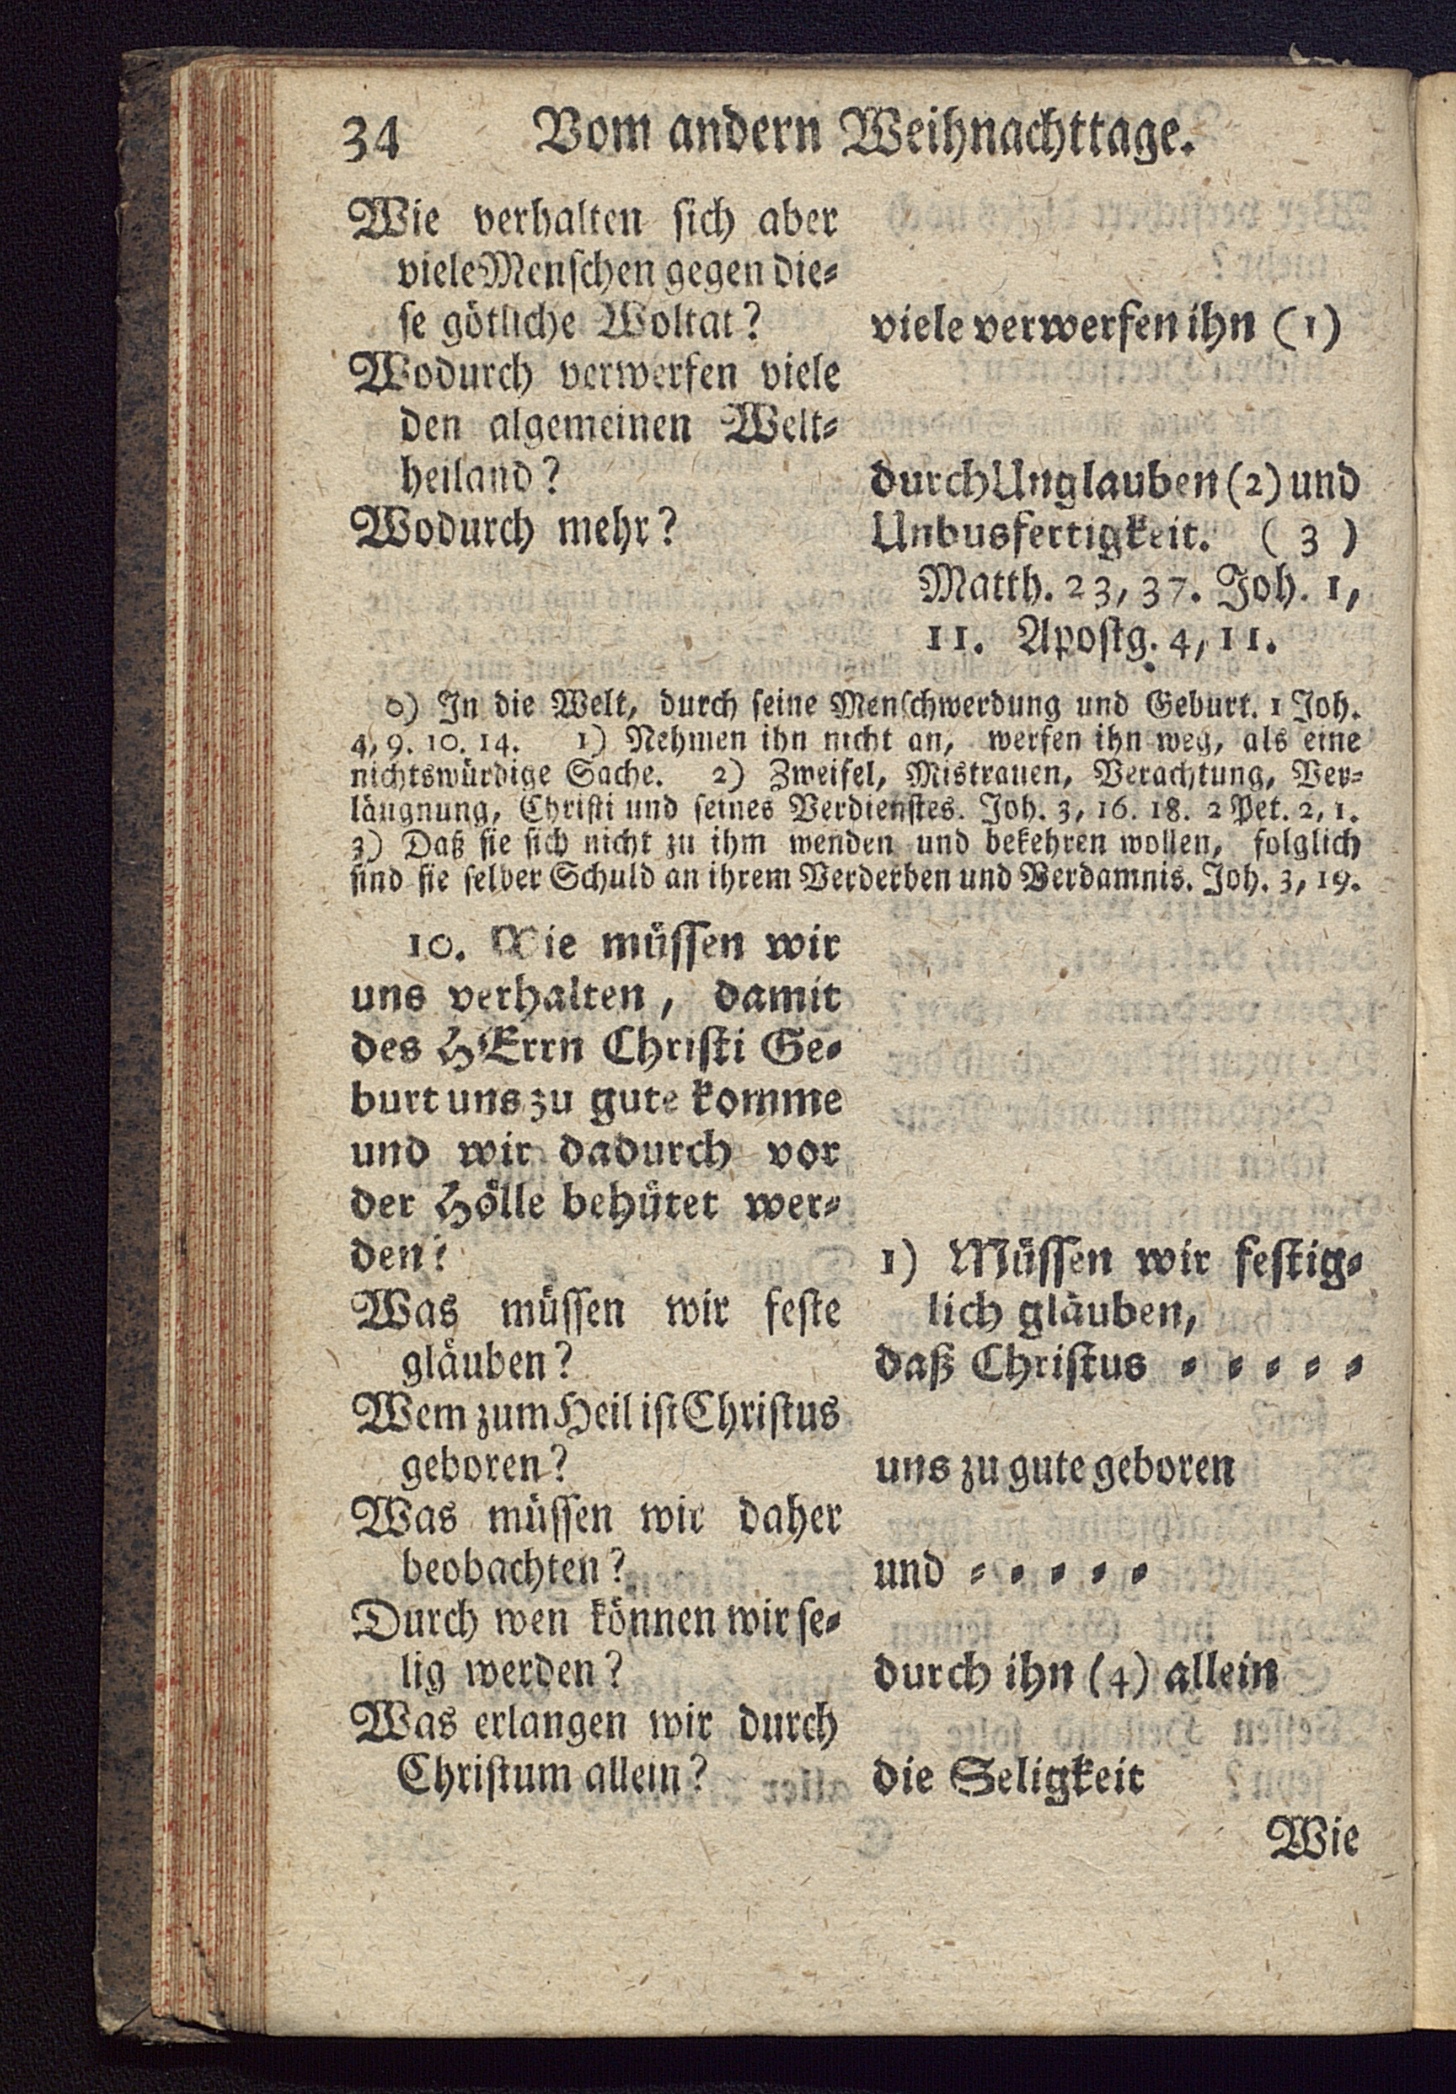 34 Vom andern Weihnachttage.
Wie verhalten sich aber
viele Menschen gegen die-
se götliche Woltat?
viele verwerfen ihn (1)
Wodurch verwerfen viele
den algemeinen Welt-
heiland?
durch Unglauben (2) und
Wodurch mehr?
Unbusfertigkeit. (3)
Matth. 23, 37. Joh. 1,
11. Apostg. 4, 11.
0) In die Welt, durch seine Menschwerdung und Geburt. 1 Joh.
4, 9. 10. 14. 1) Nehmen ihn nicht an, werfen ihn weg, als eine
nichtswürdige Sache. 2) Zweifel, Mistrauen, Verachtung, Ver-
läugnung, Christi und seines Verdienstes. Joh. 3, 16. 18. 2 Pet. 2, 1.
3) Daß sie sich nicht zu ihm wenden und bekehren wollen, folglich
sind sie selber Schuld an ihrem Verderben und Verdamnis. Joh. 3, 19.
10. Wie müssen wir
uns verhalten, damit
des HErrn Christi Ge-
burt uns zu gute komme
und wir dadurch vor
der Hölle behütet wer-
den?
1) Müssen wir festig-
lich gläuben,
Was müssen wir feste
gläuben?
daß Christus - - - - -
Wem zum Heil ist Christus
geboren?
uns zu gute geboren
Was müssen wir daher
beobachten?
und - - - - -
Durch wen können wir se-
lig werden?
durch ihn (4) allein
Was erlangen wir durch
Christum allein?
die Seligkeit
Wie